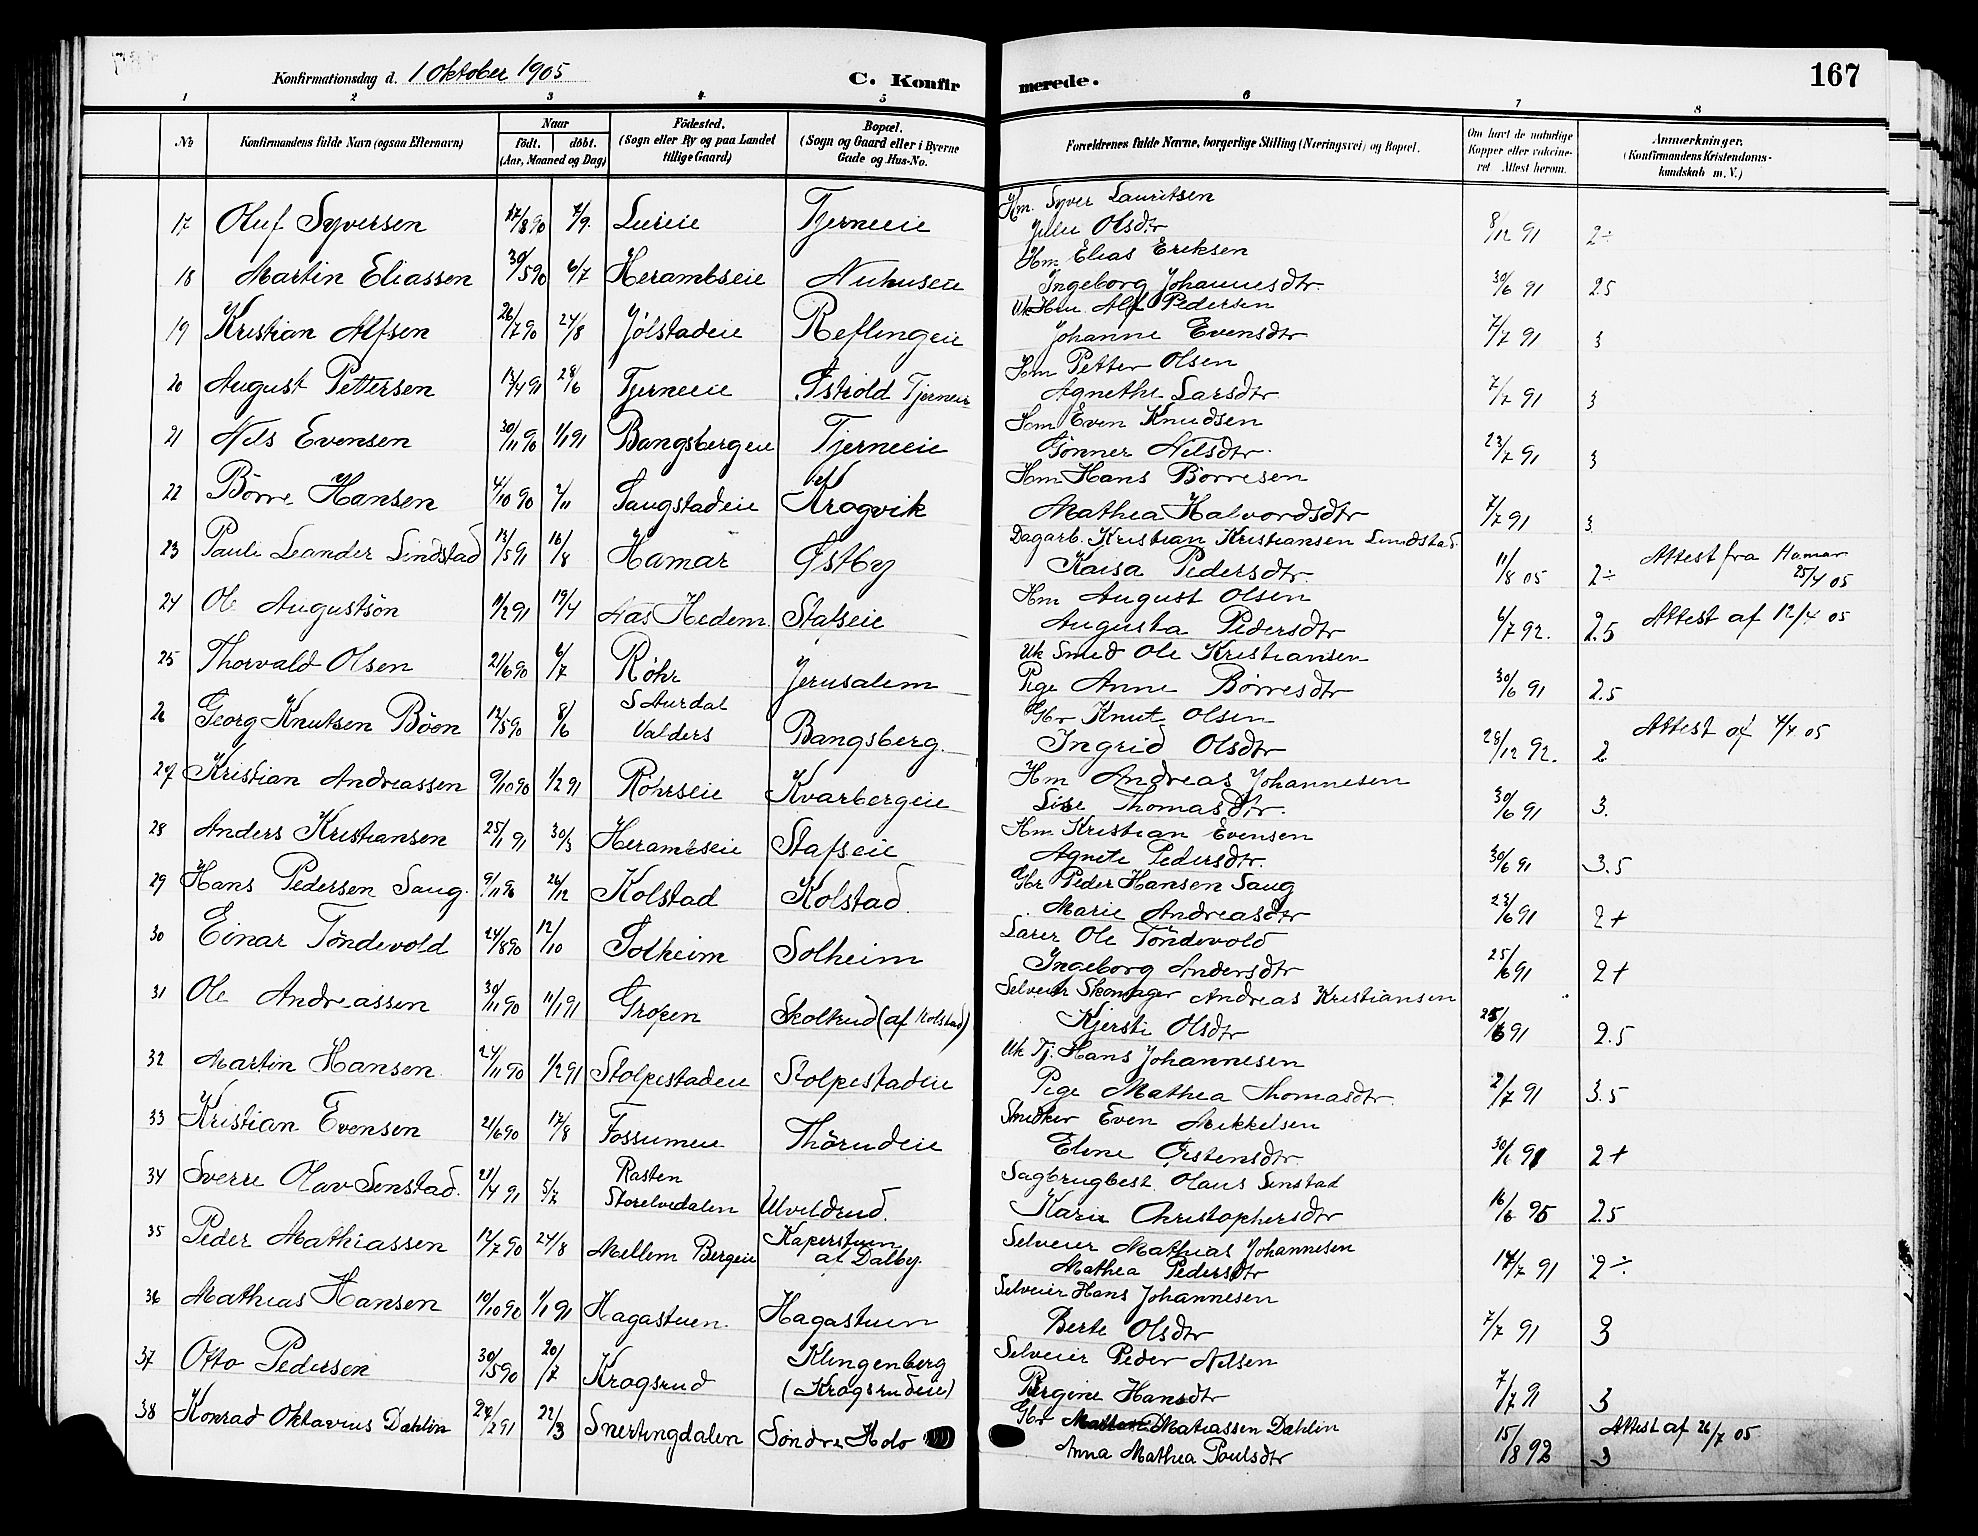 Konfirmationsdag d. 1 Oktober 1905
C. Konfir
merede.
167
1 2 3 4 5 6 7 8
No
Konfirmandens fulde Navn (ogsaa Efternavn)
Naar
født. døbt.
(Aar, Maaned og Dag)
Fødested.
(Sogn eller By og paa Landet
tillige Gaard)
Bopæl.
(Sogn og Gaard eller i Byerne
Gade og Hus-No.
Forældrenes fulde Navne, borgerlige Stilling (Næringsvei) og Bopæl.
Om havt de naturlige
Kopper eller vakcine-
ret Attest herom.
Anmærkninger.
(Konfirmandens Kristendoms-
kundskab m. V.)
17 Oluf Syversen 17/8 90 7/9 Lureie Tjerneeie Hm. Syver Lauritsen
Julie Olsdtr 8/12 91 2÷
18 Martin Eliassen 30/5 90 6/7 Herambseie Nuhuseie Hm Elias Eriksen
Ingeborg Johannesdtr. 30/6 91 2.5
19 Kristian Alfsen 26/7 90 24/8 Jølstadeie Reflingeie Uk Hm. Alf Pedersen
Johanne Evensdtr 7/7 91 3
20 August Pettersen 13/4 91 28/6 Tjerneeie Østvold Tjerneie Hm Petter Olsen
Agnethe Larsdtr 7/7 91 3
21 Nils Evensen 30/11 90 1/1 91 Bangsbergeie Tjerneeie Hm Even Knudsen
Gønner Nilsdtr. 23/7 91 3
22 Børre Hansen 4/10 90 2/11 Saugstadeie Krogvik Hm Hans Børresen
Mathea Halvordsdtr 7/7 91 3
23 Pauli Leander Lindstad 13/5 91 16/8 Hamar Østby Dagarb. Kristian Kristiansen Lindstad.
Kaisa Pedersdtr. 11/8 05 2÷ Attest fra Hamar
25/4 05
24 Ole Augustsøn 11/2 91 19/4 Nas Hedem. Stafseie Hm August Olsen
Augusta Pedersdtr 6/7 92. 2.5 Attest af 12/4 05
25 Thorvald Olsen 21/6 90 6/7 Røhr Jerusalem Uk Smed Ole Kristiansen
Pige Anne Børresdtr 30/6 91 2.5
26 Georg Knutsen Bøen 12/5 90 8/6 S Aurdal
Valders Bangsberg. Gbr Knut Olsen
Ingrid Olsdtr 28/12 92. 2 Attest af 4/4 05
27 Kristian Andreassen 9/10 90 1/2 91 Røhrseie Kvarbergeie Hm Andreas Johannesen
Lise Thomasdtr. 30/6 91 3.
28 Anders Kristiansen 25/1 91 30/3 Herambseie Stafseie Hm Kristian Evensen
Agnete Pedersdtr. 30/6 91 3.5
29 Hans Pedersen Saug. 9/11 90 26/12 Kolstad Kolstad. Gbr Peder Hansen Saug
Marie Andreasdtr 23/6 91 2+
30 Einar Tøndevold 24/8 90 12/10 Solheim Solheim Lærer Ole Tøndevold
Ingeborg Andersdtr 25/6 91 2+
31 Ole Andreassen 30/11 90 11/1 91 Gropen Skoltrud (af Kolstad) Selveier Skomager Andreas Kristiansen
Kjersti Olsdtr 25/6 91 2.5
32 Martin Hansen 24/11 90 1/2 91 Stolpestadeie Stolpestadeie Uk Tj. Hans Johannesen
Pige Mathea Thomasdtr. 2/7 91 3.5
33 Kristian Evensen 21/6 90 17/8 Fossumeie Thørudeie Snedker Even Mikkelsen
Eline Østensdtr 30/6 91 2+
34 Sverre Olav Senstad. 21/4 91 5/7 Rasten
Storelvedalen Ulveldrud. Sagbrugbest. Olaus Senstad
Karie Christophersdtr 16/6 95 2.5
35 Peder Mathiassen 12/7 90 24/8 Mellem Bergeie Kaperstuen
af Dalby. Selveier Mathias Johannesen
Mathea Pedersdtr 14/7 91 2÷
36 Mathias Hansen 10/10 90 1/1 91 Hagastuen. Hagastuen Selveier Hans Johannesen
Berte Olsdtr 7/7 91 3
37 Otto Pedersen 30/5 90 20/7 Krogsrud Klingenberg
(Krogsrudeie) Selveier Peder Nilsen
Birgine Hansdtr 7/7 91 3
38 Konrad Oktavius Dahlin 24/2 91 22/3 Snertingdalen Søndre Holo Gbr Matiassen Dahlin
Anna Mathea Poulsdtr 15/8 92 3 Attest af 26/7 05